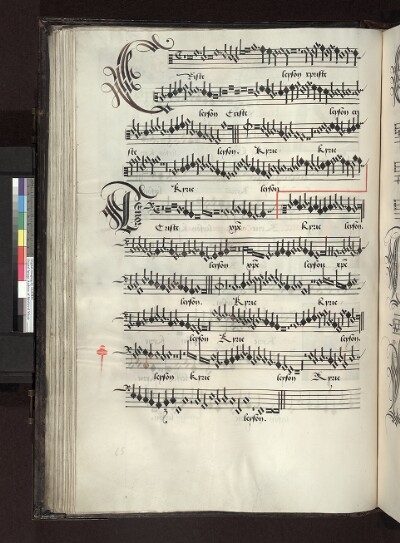 Xpiste leyson xpiste
leyson Criste leyson cri
ste leyson. Kyrie Kyrie
Kyrie leyson
Tenor
Criste xpē Kyrie leyson.
leyson xpē leyson xpē
leyson. Kyrie Kyrie
leyson Kyrie leyson.
leyson Kyrie leyson Kyrie
leyson.